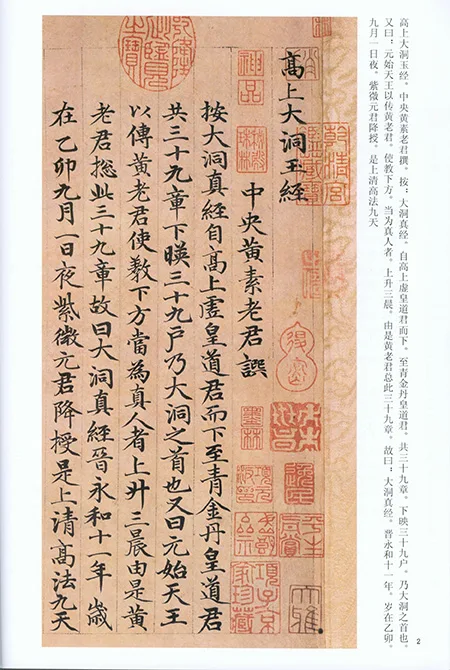 高上大洞玉经。中央黄素老君撰。按：大洞真经。自高上虚皇道君而下。至青金丹皇道君。共三十九章。下映三十九户。乃大洞之首也。
又曰：元始天王以传黄老君。使教下方。当为真人者。上升三晨。由是黄老君总此三十九章。故曰：大洞真经。晋永和十一年。岁在乙卯。
九月一日夜。紫微元君降授。是上清高法九天
2
髙上大洞玉經
中央黄素老君譔
按大洞真經自髙上虚皇道君而下至青金丹皇道君
共三十九章下暎三十九户乃大洞之首也又曰元始天王
以傳黄老君使教下方當為真人者上升三晨由是黄
老君揔此三十九章故曰大洞真經晉永和十一年歲
在乙卯九月一日夜紫微元君降授是上清髙法九天
神品
墨林
項子京
家珍藏